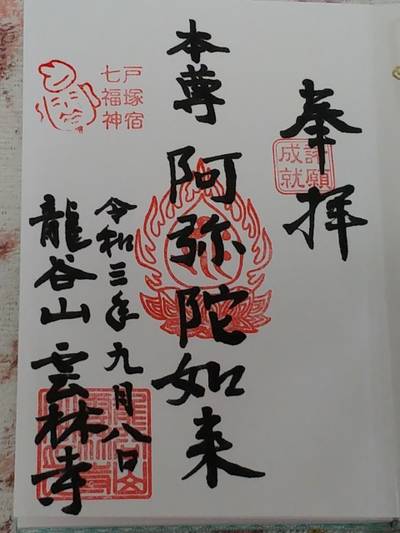 奉拝
諸願
成就
本尊
阿弥陀如来
令和三年九月八日
戸塚宿
七福神
龍谷山
雲林寺